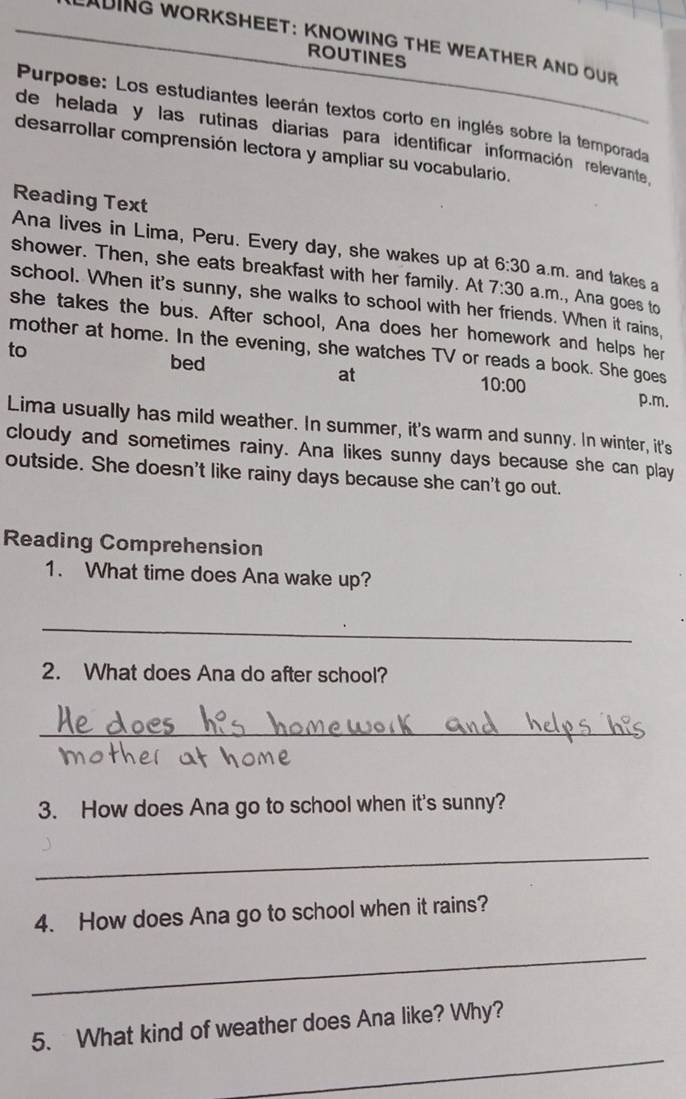 READING WORKSHEET: KNOWING THE WEATHER AND OUR
ROUTINES
Purpose: Los estudiantes leerán textos corto en inglés sobre la temporada
de helada y las rutinas diarias para identificar información relevante,
desarrollar comprensión lectora y ampliar su vocabulario.
Reading Text
Ana lives in Lima, Peru. Every day, she wakes up at 6:30 a.m. and takes a
shower. Then, she eats breakfast with her family. At 7:30 a.m., Ana goes to
school. When it's sunny, she walks to school with her friends. When it rains,
she takes the bus. After school, Ana does her homework and helps her
mother at home. In the evening, she watches TV or reads a book. She goes
to bed at 10:00 p.m.
Lima usually has mild weather. In summer, it's warm and sunny. In winter, it's
cloudy and sometimes rainy. Ana likes sunny days because she can play
outside. She doesn't like rainy days because she can't go out.
Reading Comprehension
1. What time does Ana wake up?
2. What does Ana do after school?
He does his homework and helps his
mother at home
3. How does Ana go to school when it's sunny?
4. How does Ana go to school when it rains?
5. What kind of weather does Ana like? Why?